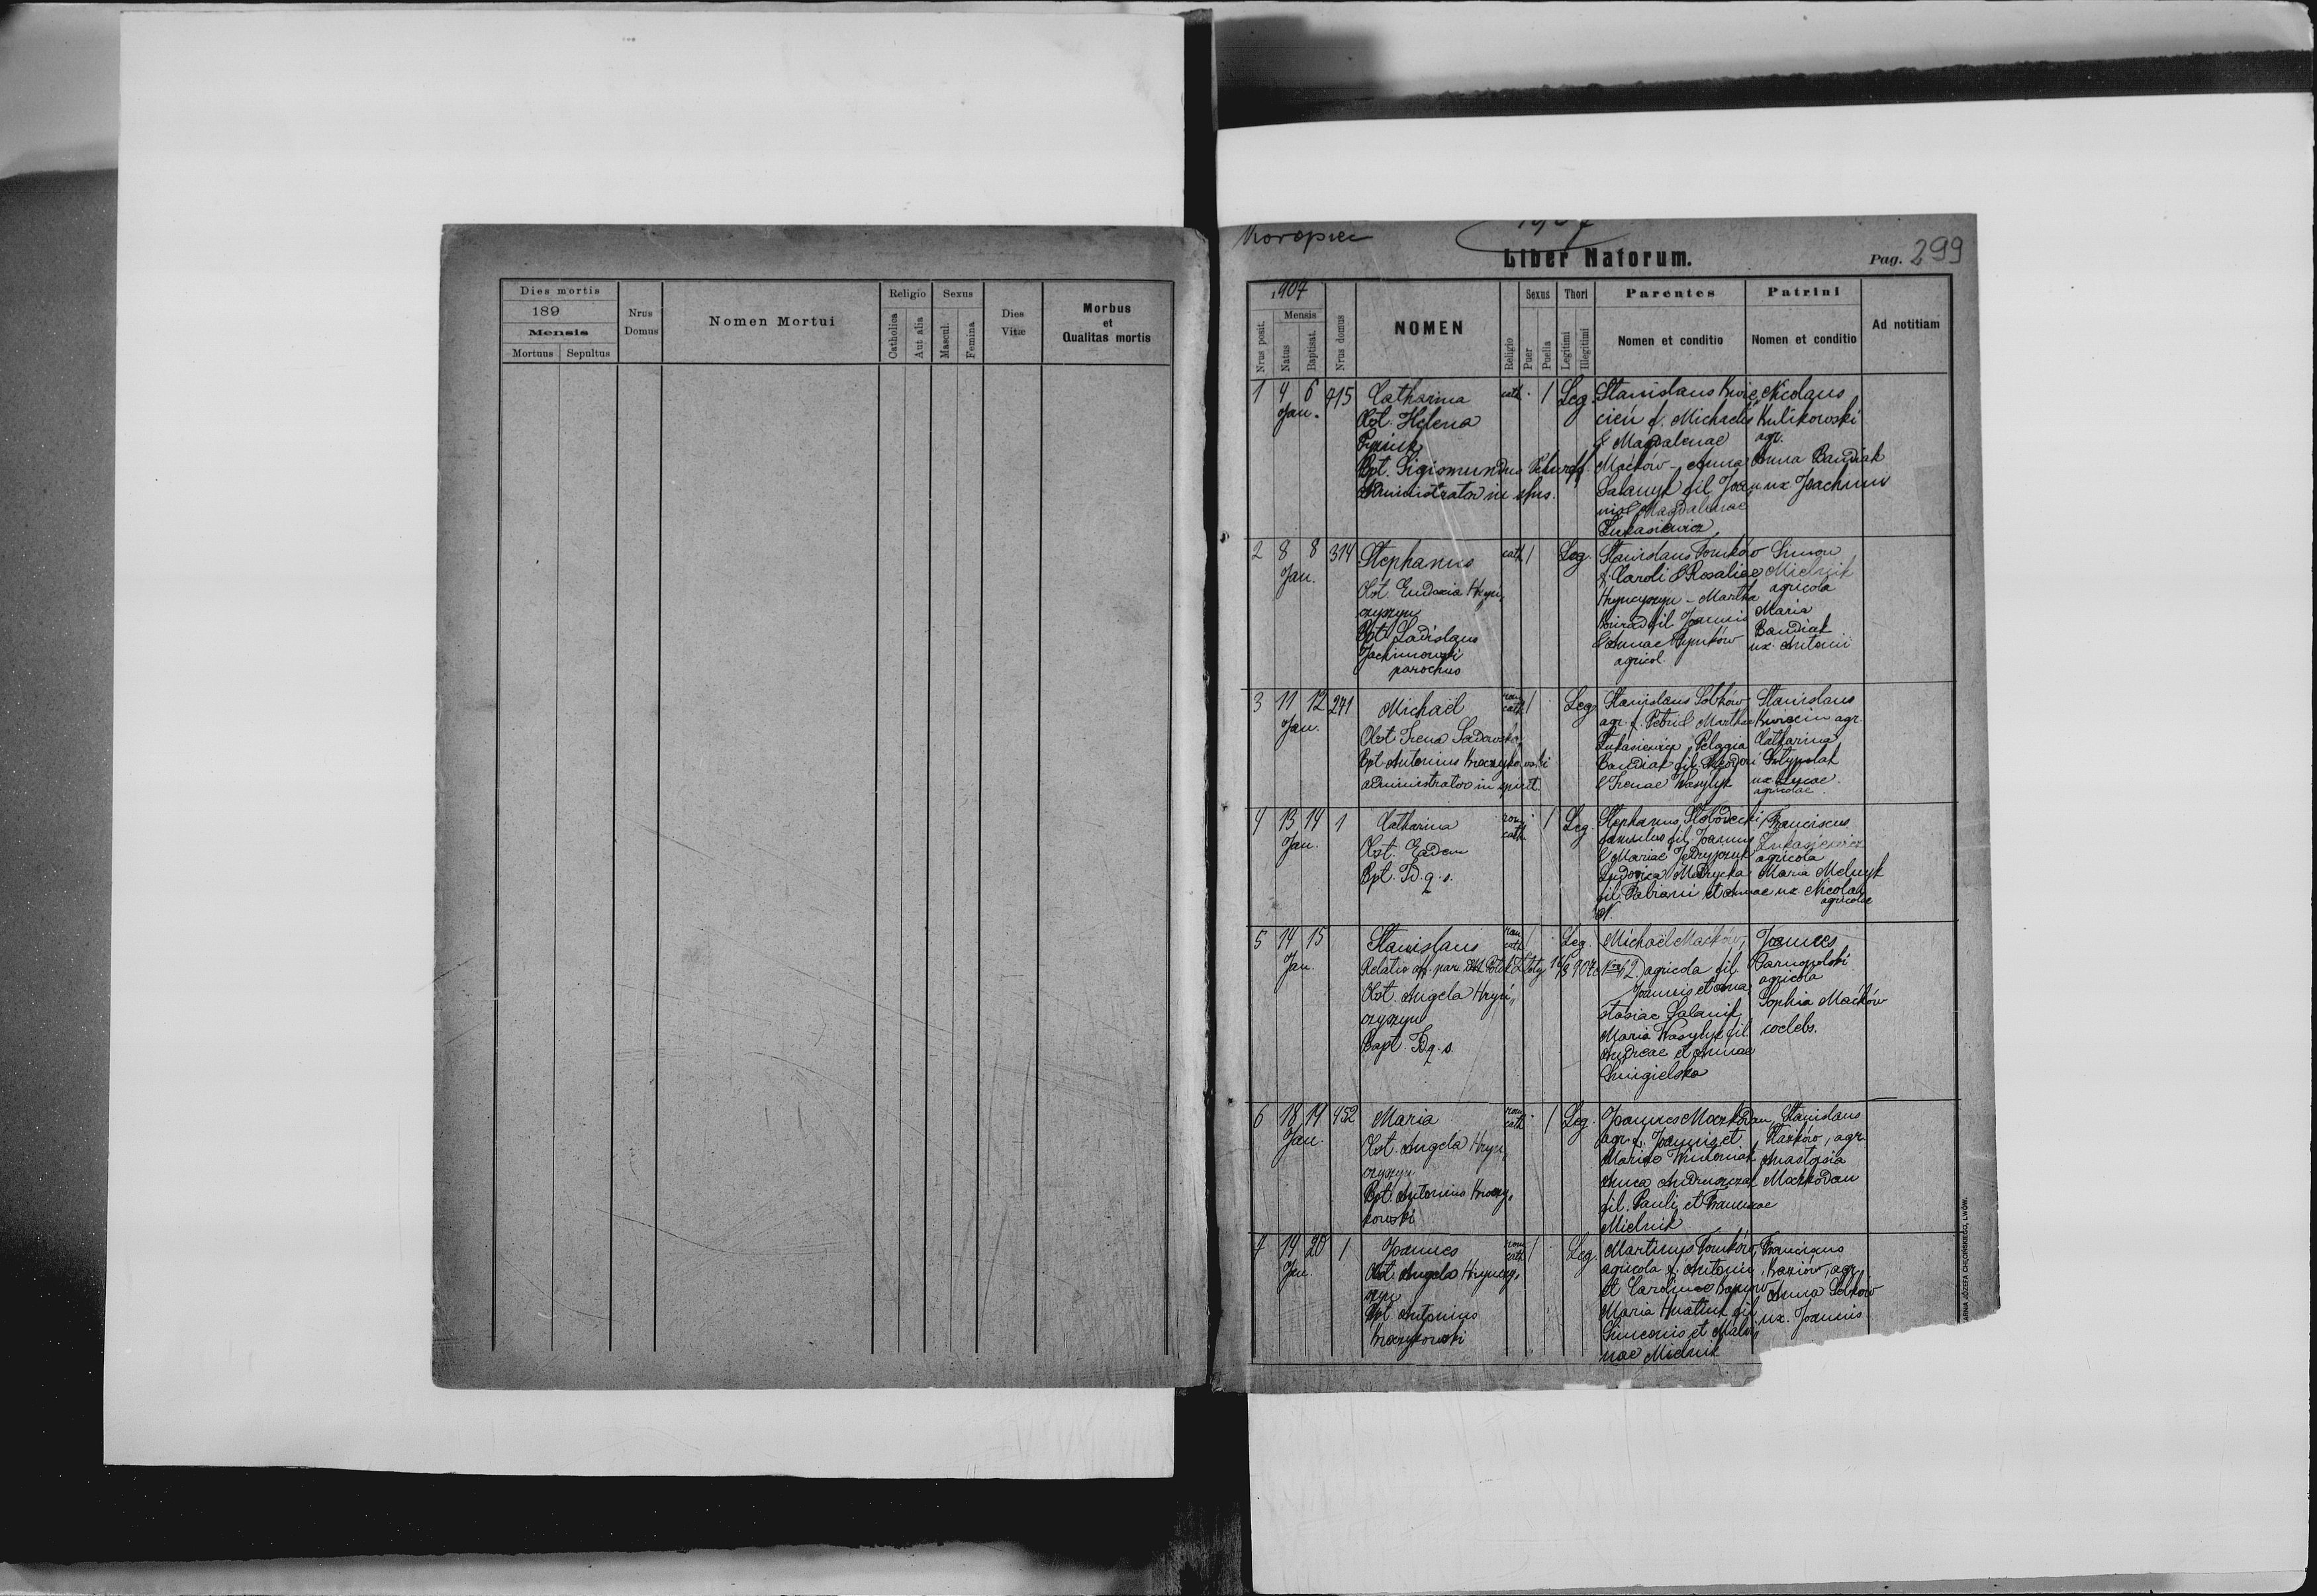 Dies mortis
189
Mensis
Mortuus Sepultus
Nrus
Domus
Nomen Mortui
Religio
Catholica
Aut alia
Sexus
Mascul.
Femina
Dies
Vitæ
Morbus
et
Qualitas mortis
Koropiec
Liber Natorum.
Pag. 299
1907
Mensis
Nrus posit.
Natus
Baptisat.
Nrus domus
NOMEN
Religio
Sexus
Puer
Puella
Thori
Legitimi
Illegitimi
Parentes
Nomen et conditio
Patrini
Nomen et conditio
Ad notitiam
1 4 6 415 Catharina cath. 1 Leg.
Jan.
Obst. Helena
Bpt. Sigismundus
Administrator in spir.
Stanislaus Kwie
cień f. Michaelis
& Magdalenae
Maćków - Anna
Salanyk fil. Joan
nis & Magdalenae
Łukasiewicz
Nicolaus
Kulikowski
agr.
Anna Bandiak
ux Joachimi
2 8 8 314 Stephanus cath 1 Leg.
Jan.
Obst. Eudoxia Hryń
czyszyn
Bpt. Ladislaus
Jachimowski
parochus
Stanislaus Tomków
f. Caroli & Rosaliae
Hrynczyszyn - Martha
fil. Joannis
& Annae
agricol.
Simon
Mielnik
agricola
Maria
Bandiak
ux. Antonii
3 11 12 241 Michaël rom cath 1 Leg
Jan.
Obst. Irena Sadowska
Bpt. Antonius Kroczykowski
administrator in spirit.
Stanislaus Sobków
agr. f. Petri & Marthae
Łukasiewicz, Pelagia
Bandiak fil. Theodori
& Irenae Wasylyk
Stanislaus
Kwiecin agr.
Catharina
ux Lucae
agricolae.
4 13 14 1 Catharina rom cath 1 Leg.
Jan.
Obst. Eadem
Bpt. Id. q. s.
Stephanus Słobodecki
famulus fil. Joannis
& Mariae
Ludovica Mudrycka
fil. Fabiani et Annae
N.
Franciscus
Łukasiewicz
agricola
Maria Melnyk
ux Nicolai
agricolae
5 14 15 Stanislaus rom cath 1 Leg.
Jan.
Relatio off. par. Potok Złoty 16/3 907
Obst. Angela Hryń
czyszyn
Bapt. Id. q. s.
Michaël Maćków,
agricola fil.
Joannis et Ana
stasiae Salanyk
Maria Wasylyk fil
Andreae et Annae
Śmigielska
Joannes
Tarnopolski
agricola
Sophia Maćków
coelebs.
6 18 19 452 Maria rom cath 1 Leg.
Jan.
Obst. Angela Hryń
czyszyn
Bpt. Antonius Kroczy
kowski
Joannes Markodan
agr. f. Joannis et
Mariae Winterniak
Anna Andruszczak
fil. Pauli et Franciscae
Mielnik
Stanislaus
agr.
Anastasia
Markodan
7 19 20 1 Joannes rom cath 1 Leg
Jan.
Obst. Angela Hrynczy
szyn
Bpt Antonius
Kroczykowski
Martinus Tomków,
agricola f. Antonii
et Carolinae
Maria Hnatiuk fil
Simeonis et Malwi
nae Mielnik
Franciscus
agr.
Anna Sobków
ux. Joannis
JÓZEFA CHĘCIŃSKIEGO, LWÓW.